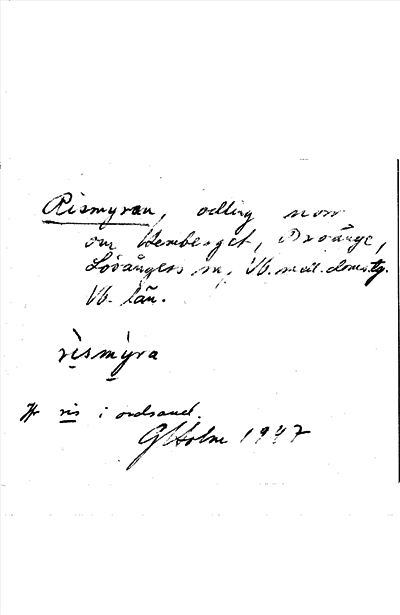 Rismyran, odling norr
om Hemberget, Broänge,
Lövångers sn, Vb. m:a t. domstg.
Vb. län.
rismýra
Jfr ris i ordsaml.
G Holm 1947